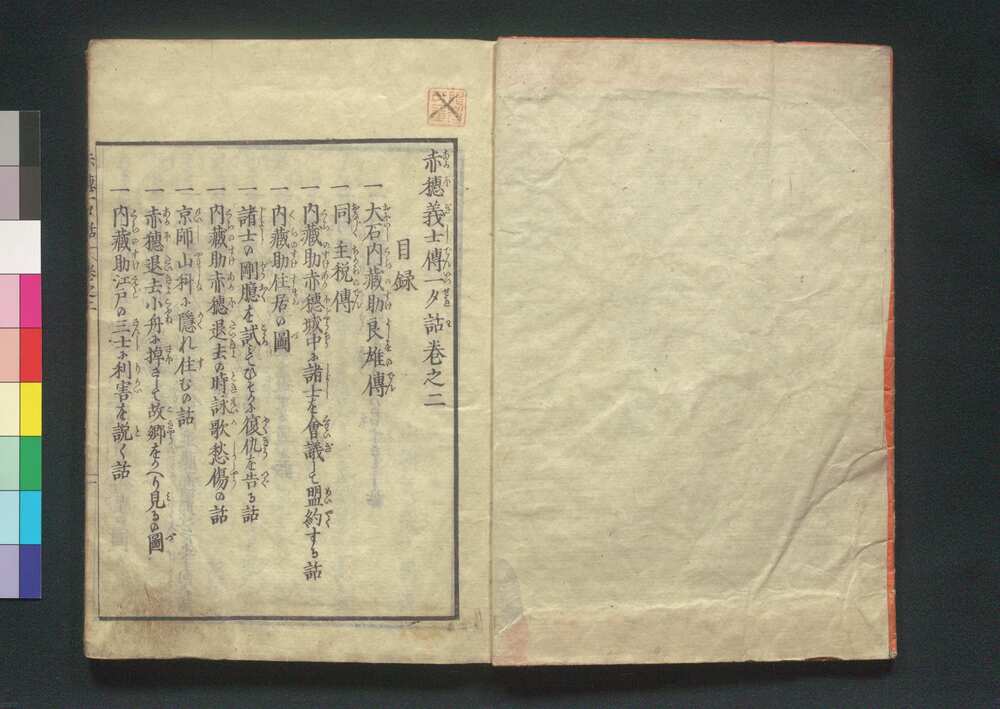 赤穗義士傳一夕話巻之二
目録
一 大石内藏助良雄傳
一 同 主税傳
一 内藏助赤穗城中に諸士を會議して盟約する話
一 内藏助住居の圖
一 諸士の剛臆を試とひそかに復仇を告る話
一 内藏助赤穗退去の時詠歌愁傷の話
一 京師山科に隱れ住むの話
一 赤穗退去小舟に掉さして故郷をかへり見るの圖
一 内藏助江戸の三士に利害を説く話